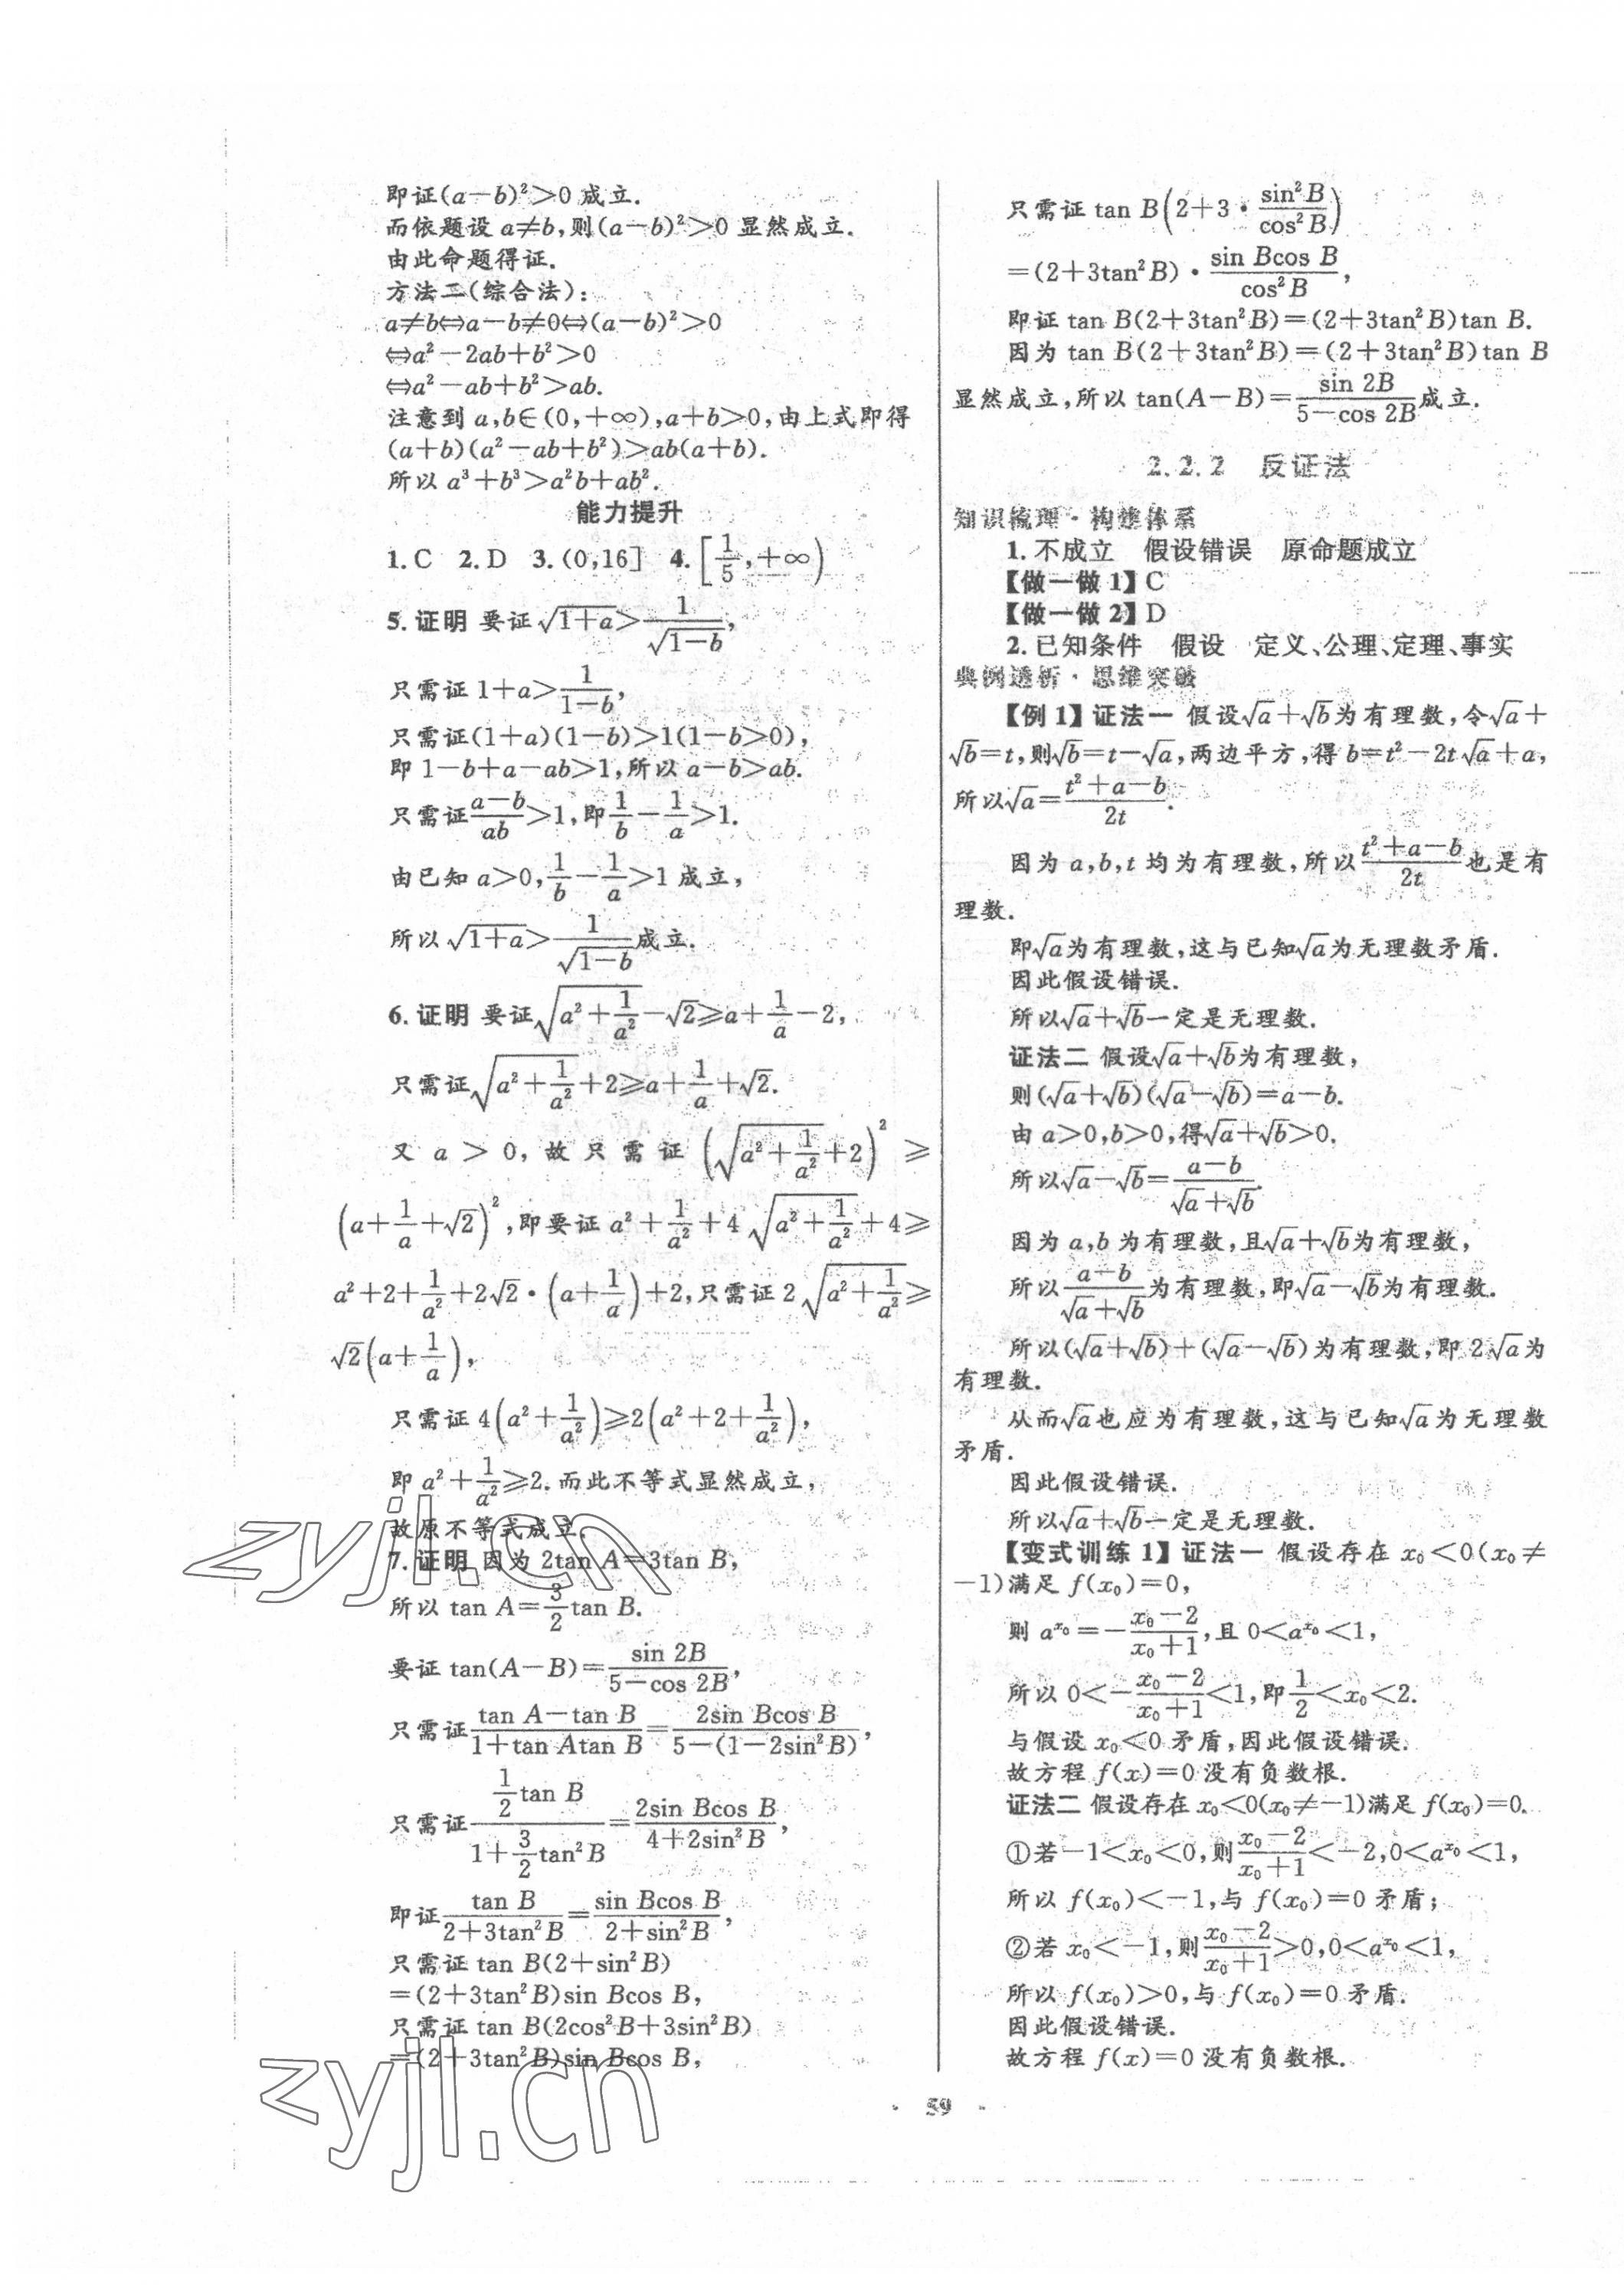 即证(a-b)²>0 成立.
而依题设 a≠b,则(a-b)²>0 显然成立.
由此命题得证.
方法二(综合法):
a≠b⇔a-b≠0⇔(a-b)²>0
⇔a²-2ab+b²>0
⇔a²-ab+b²>ab.
注意到 a,b∈(0,+∞),a+b>0,由上式即得
(a+b)(a²-ab+b²)>ab(a+b).
所以 a³+b³>a²b+ab².
能力提升
1.C 2.D 3.(0,16] 4.[1/5,+∞)
5.证明 要证√(1+a)>1/√(1-b),
只需证 1+a>1/(1-b),
只需证(1+a)(1-b)>1(1-b>0),
即 1-b+a-ab>1,所以 a-b>ab.
只需证(a-b)/ab>1,即1/b-1/a>1.
由已知 a>0,1/b-1/a>1 成立,
所以√(1+a)>1/√(1-b)成立.
6.证明 要证√(a²+1/a²)-√2≥a+1/a-2,
只需证√(a²+1/a²)+2≥a+1/a+√2.
又 a>0,故只需证(√(a²+1/a²)+2)²≥
(a+1/a+√2)²,即要证 a²+1/a²+4√(a²+1/a²)+4≥
a²+2+1/a²+2√2·(a+1/a)+2,只需证 2√(a²+1/a²)≥
√2(a+1/a),
只需证 4(a²+1/a²)≥2(a²+2+1/a²),
即 a²+1/a²≥2.而此不等式显然成立,
故原不等式成立.
7.证明 因为 2tan A=3tan B,
所以 tan A=3/2 tan B.
要证 tan(A-B)=sin 2B/(5-cos 2B),
只需证(tan A-tan B)/(1+tan Atan B)=2sin Bcos B/(5-(1-2sin²B)),
只需证(1/2 tan B)/(1+3/2 tan²B)=2sin Bcos B/(4+2sin²B),
即证tan B/(2+3tan²B)=sin Bcos B/(2+sin²B),
只需证 tan B(2+sin²B)
=(2+3tan²B)sin Bcos B,
只需证 tan B(2cos²B+3sin²B)
=(2+3tan²B)sin Bcos B,
只需证 tan B(2+3·sin²B/cos²B)
=(2+3tan²B)·sin Bcos B/cos²B,
即证 tan B(2+3tan²B)=(2+3tan²B)tan B.
因为 tan B(2+3tan²B)=(2+3tan²B)tan B
显然成立,所以 tan(A-B)=sin 2B/(5-cos 2B)成立.
2.2.2 反证法
知识梳理·构建体系
1.不成立 假设错误 原命题成立
【做一做1】C
【做一做2】D
2.已知条件 假设 定义、公理、定理、事实
典例透析·思维突破
【例1】证法一 假设√a+√b为有理数,令√a+
√b=t,则√b=t-√a,两边平方,得 b=t²-2t√a+a,
所以√a=(t²+a-b)/2t.
因为 a,b,t 均为有理数,所以(t²+a-b)/2t也是有
理数.
即√a为有理数,这与已知√a为无理数矛盾.
因此假设错误.
所以√a+√b一定是无理数.
证法二 假设√a+√b为有理数,
则(√a+√b)(√a-√b)=a-b.
由 a>0,b>0,得√a+√b>0.
所以√a-√b=(a-b)/(√a+√b).
因为 a,b 为有理数,且√a+√b为有理数,
所以(a-b)/(√a+√b)为有理数,即√a-√b为有理数.
所以(√a+√b)+(√a-√b)为有理数,即 2√a为
有理数.
从而√a也应为有理数,这与已知√a为无理数
矛盾.
因此假设错误.
所以√a+√b一定是无理数.
【变式训练1】证法一 假设存在 x₀<0(x₀≠
-1)满足 f(x₀)=0,
则 a^x₀=-(x₀-2)/(x₀+1),且 0<a^x₀<1,
所以 0<-(x₀-2)/(x₀+1)<1,即1/2<x₀<2.
与假设 x₀<0 矛盾,因此假设错误.
故方程 f(x)=0 没有负数根.
证法二 假设存在 x₀<0(x₀≠-1)满足 f(x₀)=0.
①若-1<x₀<0,则(x₀-2)/(x₀+1)<-2,0<a^x₀<1,
所以 f(x₀)<-1,与 f(x₀)=0 矛盾;
②若 x₀<-1,则(x₀-2)/(x₀+1)>0,0<a^x₀<1,
所以 f(x₀)>0,与 f(x₀)=0 矛盾.
因此假设错误.
故方程 f(x)=0 没有负数根.
· 59 ·
zyjl.cn
zyjl.cn